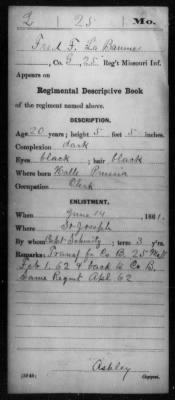 L | 25 | Mo.
Fred F. La Baume
, Co. G, 25 Reg't Missouri Inf.
Appears on
Regimental Descriptive Book
of the regiment named above.
DESCRIPTION.
Age 20 years; height 5 feet 5 inches.
Complexion dark
Eyes black ; hair black
Where born Halle Prussia
Occupation Clerk
ENLISTMENT.
When June 14 , 1861.
Where St Joseph
By whom Capt Schmitz ; term 3 y'rs.
Remarks: Transf fr Co B. 25 Mo
Feb 1. 62 & back to Co B.
Same Regmt Apl 62
Ashley
Copyist.